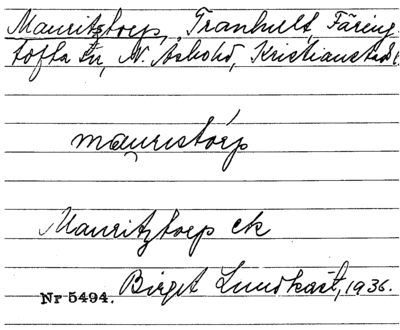 Mauritztorp, Tranhult, Färing-
tofta sn, N. Åsbohd, Kristianstads l.
mauristorp
Mauritztorp ek
Nr 5494. Birget Lundkast, 1936.